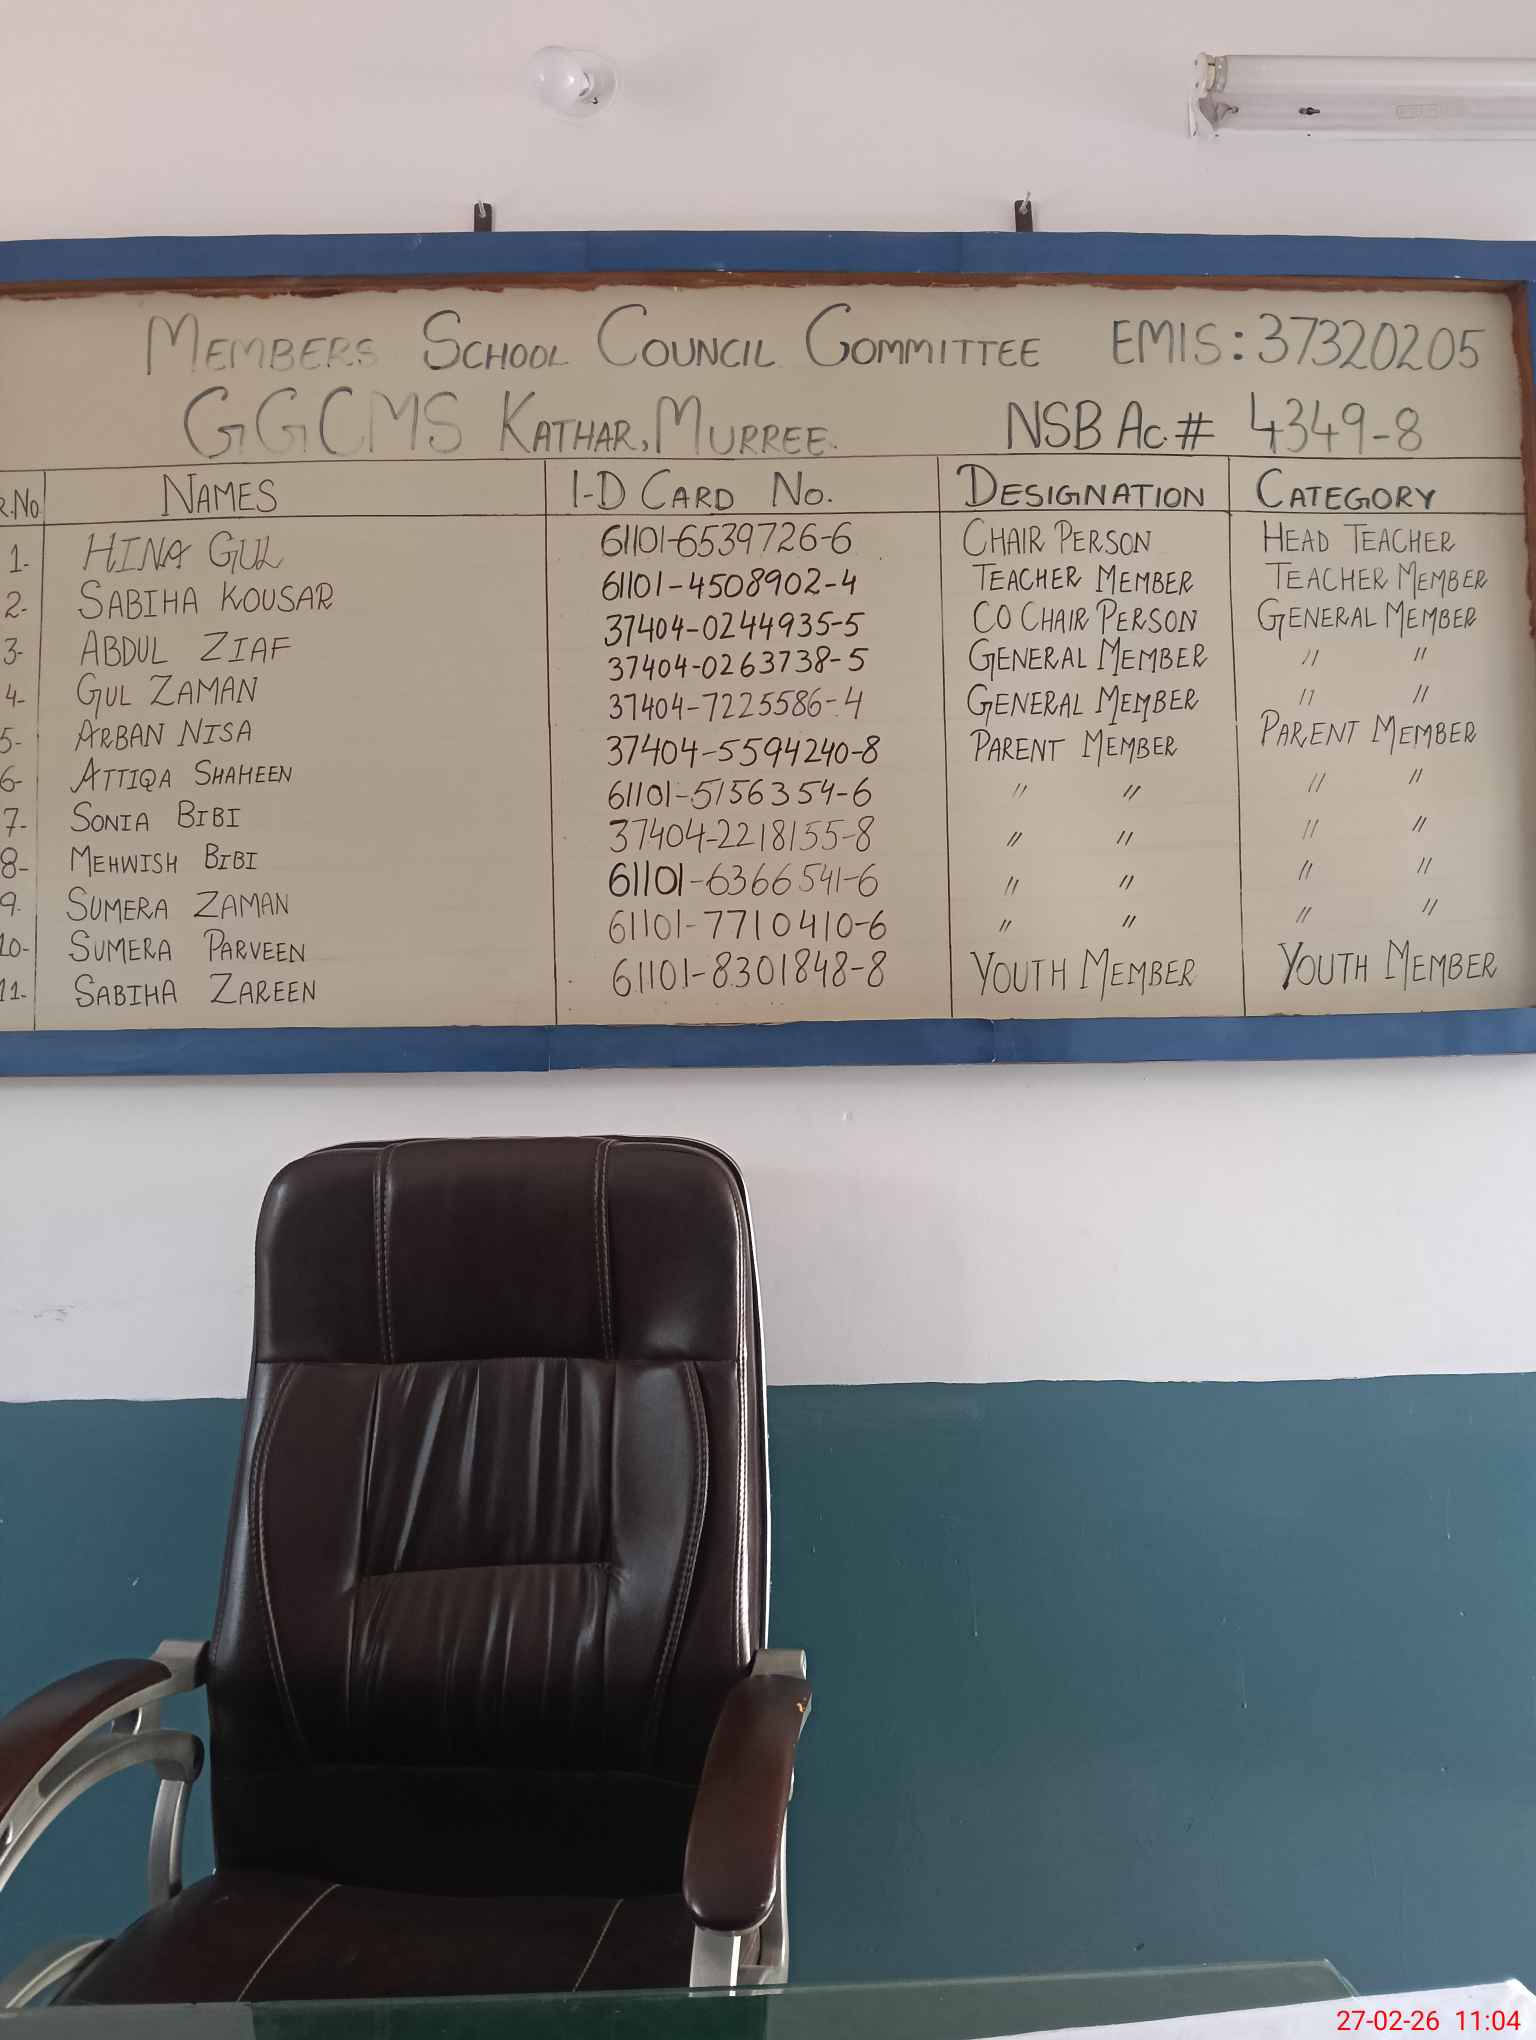 MEMBERS SCHOOL COUNCIL COMMITTEE EMIS: 37320205
GGCMS KATHAR, MURREE. NSB Ac # 4349-8
R.No. NAMES I-D CARD No. DESIGNATION CATEGORY
1- HINA GUL 61101-6539726-6 CHAIR PERSON HEAD TEACHER
2- SABIHA KOUSAR 61101-4508902-4 TEACHER MEMBER TEACHER MEMBER
3- ABDUL ZIAF 37404-0244935-5 CO CHAIR PERSON GENERAL MEMBER
4- GUL ZAMAN 37404-0263738-5 GENERAL MEMBER " "
5- ARBAN NISA 37404-7225586-4 GENERAL MEMBER " "
6- ATTIQA SHAHEEN 37404-5594240-8 PARENT MEMBER PARENT MEMBER
7- SONIA BIBI 61101-5156354-6 " " " "
8- MEHWISH BIBI 37404-2218155-8 " " " "
9. SUMERA ZAMAN 61101-6366541-6 " " " "
10- SUMERA PARVEEN 61101-7710410-6 " " " "
11- SABIHA ZAREEN 61101-8301848-8 YOUTH MEMBER YOUTH MEMBER
27-02-26 11:04